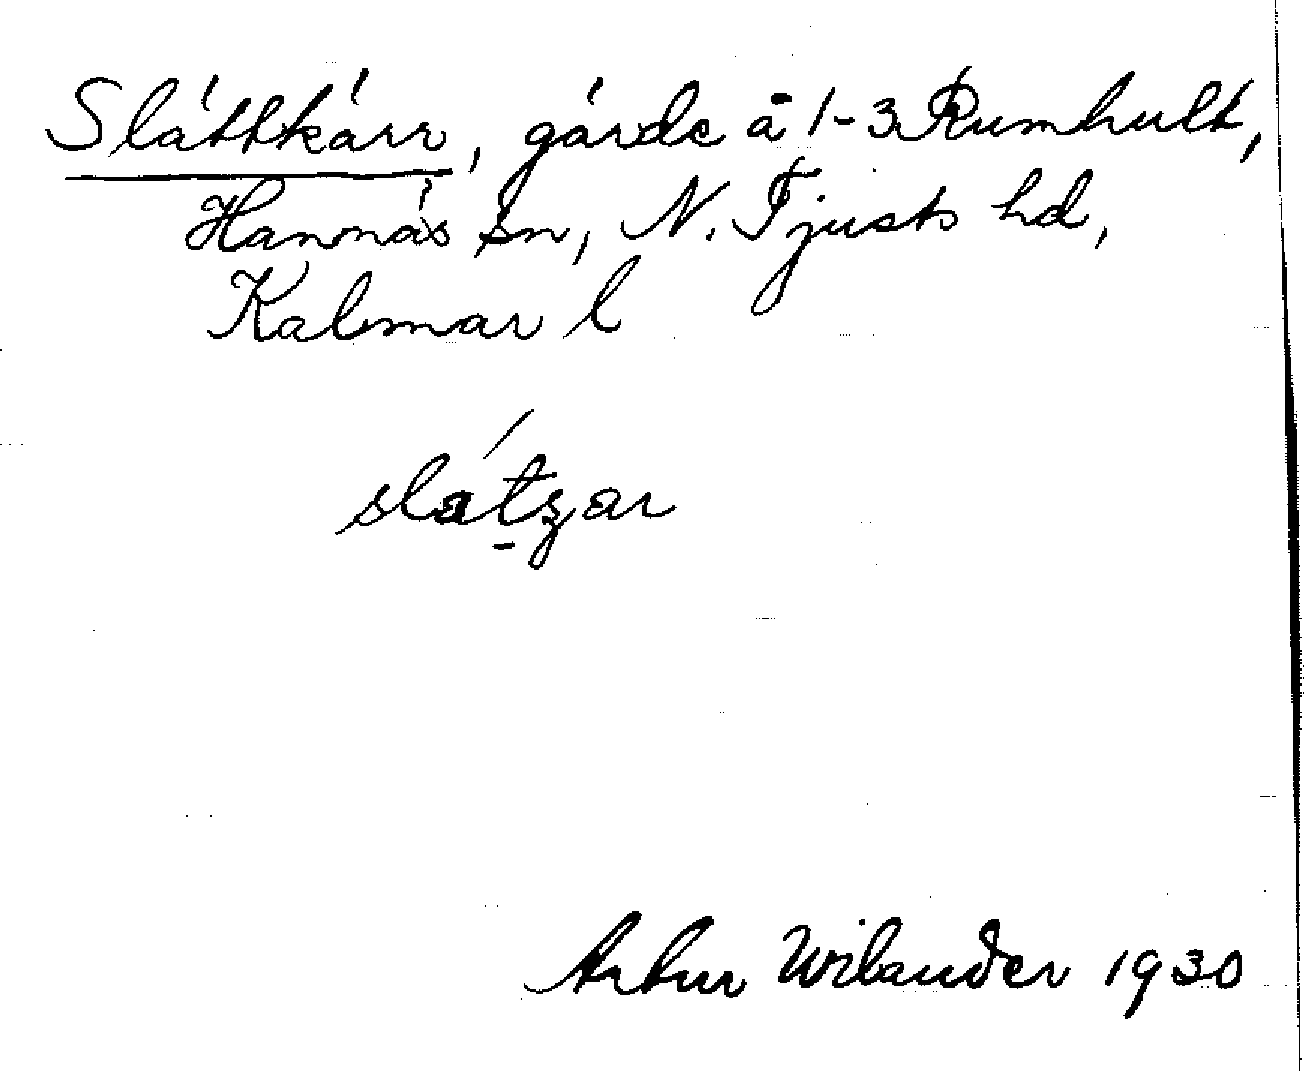 Slättkärr, gärde å 1-3 Rumhult,
Hannäs sn, N. Tjusts hd,
Kalmar l
Artur Wilander 1930